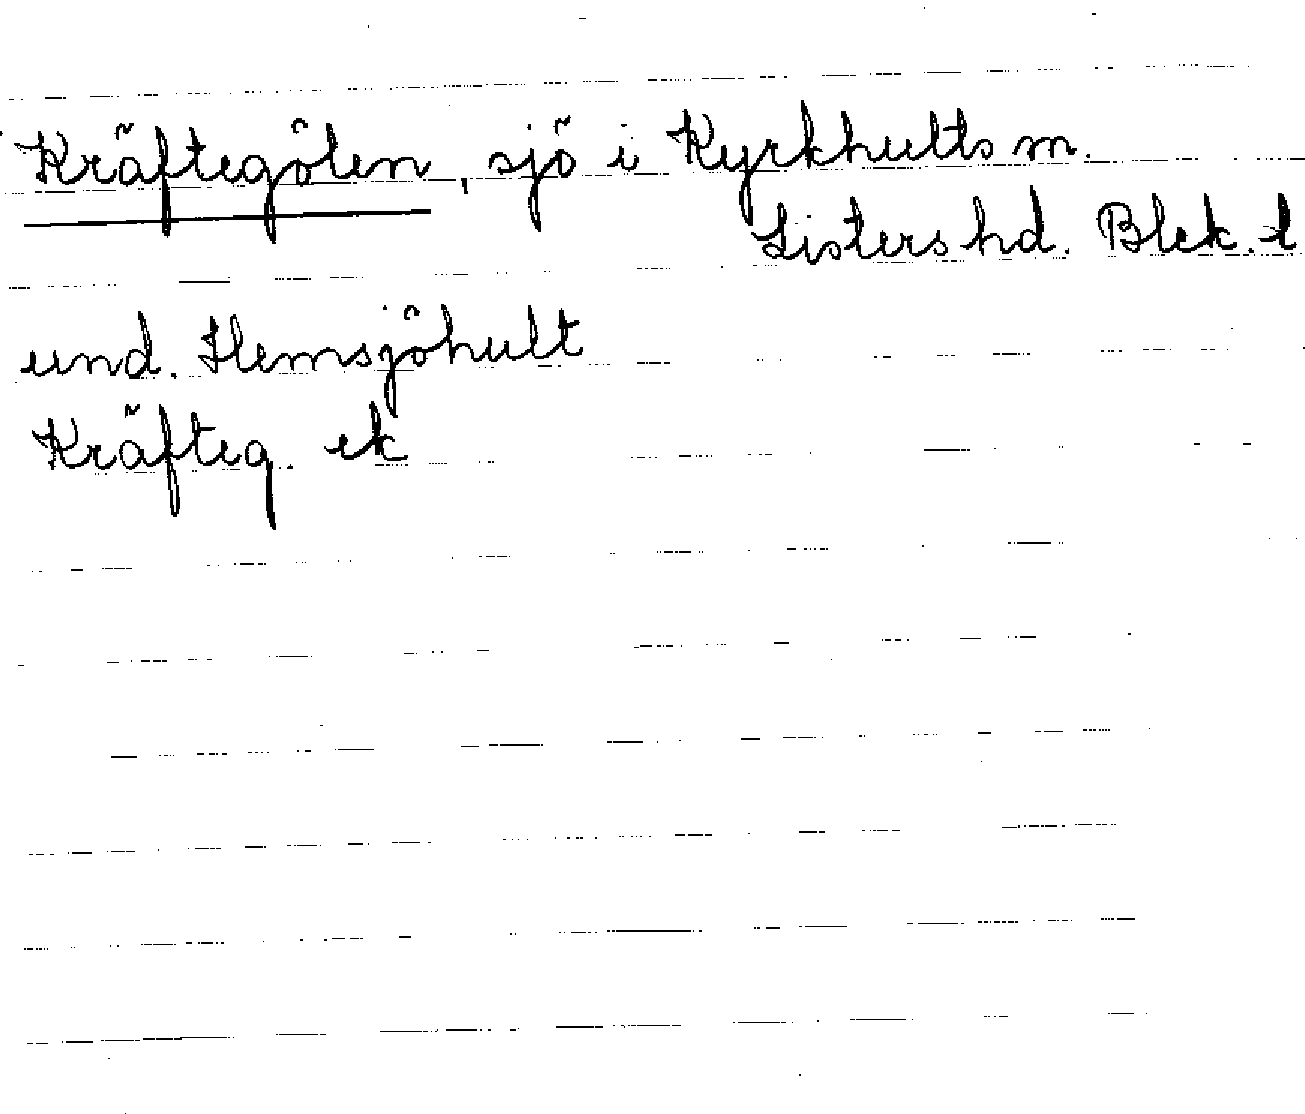 Kräftegölen, sjö i Kyrkhults sn.
Listers hd. Blek. l
und. Hemsjöhult
Kräfteg. ek